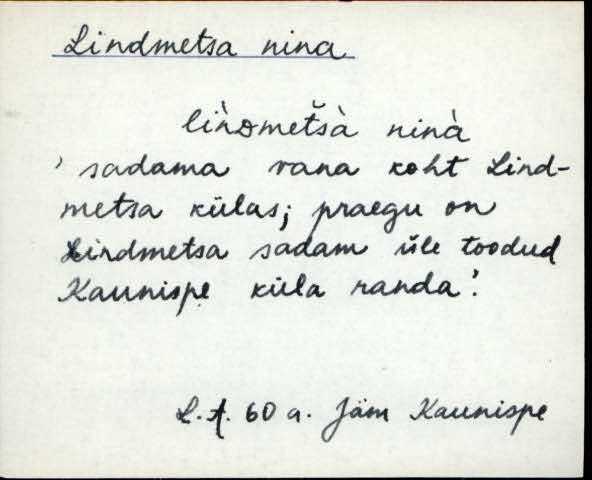 Lindmetsa nina
lìnᴅmet̆šà ninà
' sadama vana koht Lind-
metsa külas; praegu on
Lindmetsa sadam üle toodud
Kaunispe küla randa'.
L.A. 60 a. Jäm Kaunispe